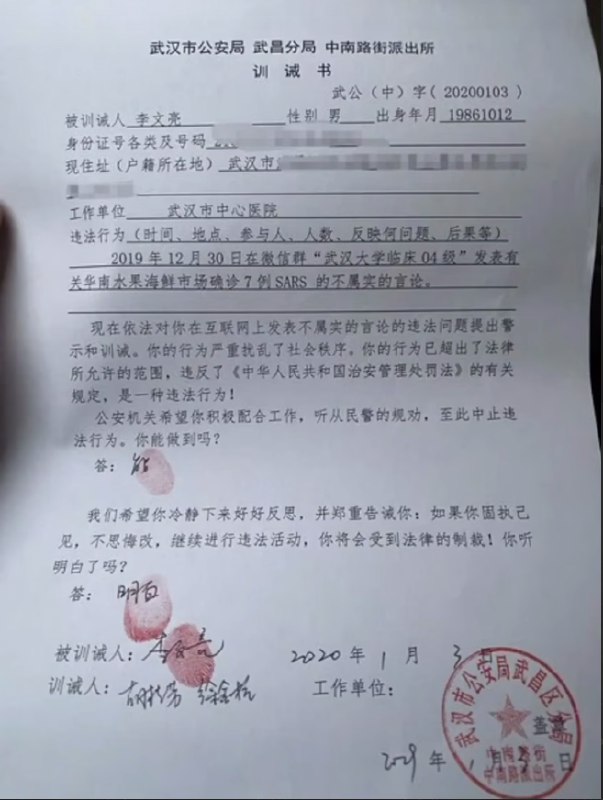 武汉市公安局 武昌分局 中南路街派出所
训诫书
武公（中）字（20200103）
被训诫人 李文亮 性别 男 出身年月 19861012
身份证号各类及号码
现住址（户籍所在地） 武汉市
工作单位 武汉市中心医院
违法行为（时间、地点、参与人、人数、反映何问题、后果等）
2019年12月30日在微信群“武汉大学临床04级”发表有
关华南水果海鲜市场确诊7例SARS的不属实的言论。
现在依法对你在互联网上发表不属实的言论的违法问题提出警
示和训诫。你的行为严重扰乱了社会秩序。你的行为已超出了法律
所允许的范围，违反了《中华人民共和国治安管理处罚法》的有关
规定，是一种违法行为！
公安机关希望你积极配合工作，听从民警的规劝，至此中止违
法行为。你能做到吗？
答：能
我们希望你冷静下来好好反思，并郑重告诫你：如果你固执己
见，不思悔改，继续进行违法活动，你将会受到法律的制裁！你听
明白了吗？
答：明白
被训诫人：李文亮 2020年1月3日
训诫人： 工作单位：
武汉市公安局武昌区分局
盖章
中南路街
中南路派出所
年1月3日